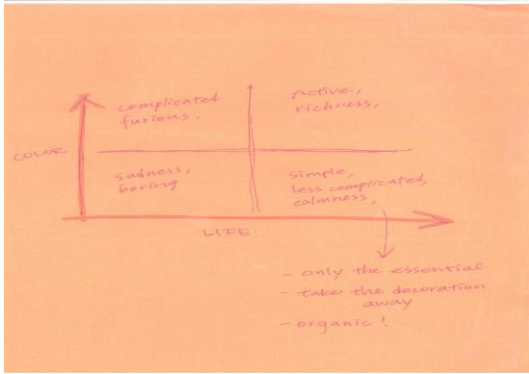 complicated
furious,
Active,
richness,
COLOR
sadness,
boring
simple,
less complicated,
calmness,
LIFE
- only the essential
- take the decoration
away
- organic!